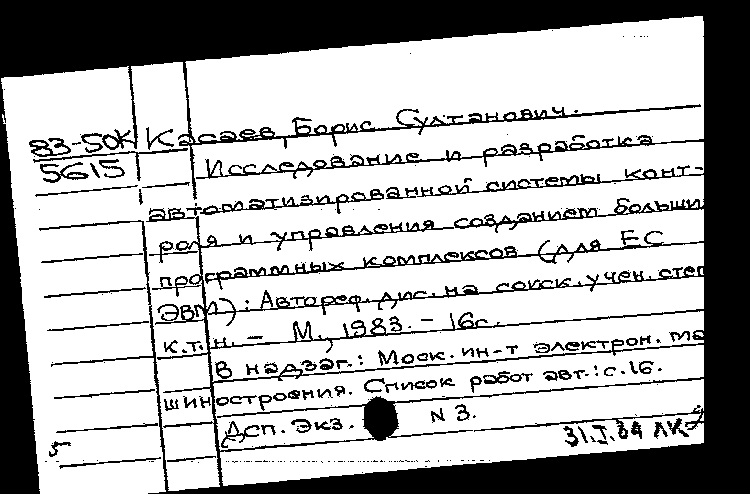 83-50К Касаев, Борис Султанович.
5615 Исследование и разработка
автоматизированной системы конт-
роля и управления созданием больши
программных комплексов (для ЕС
ЭВМ): Автореф. дис. на соиск. учен. степ
к.т.н. - М., 1983. - 16с.
В надзаг.: Моск. ин-т электрон. ма
шиностроения. Список работ авт.: с.16.
Дсп. Экз. N 3.
5 31.I.84 ЛК